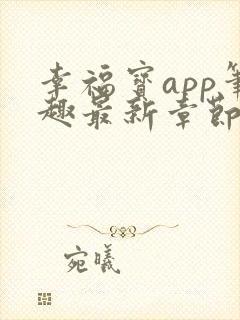 幸福宝app笔
趣最新章节
宛曦